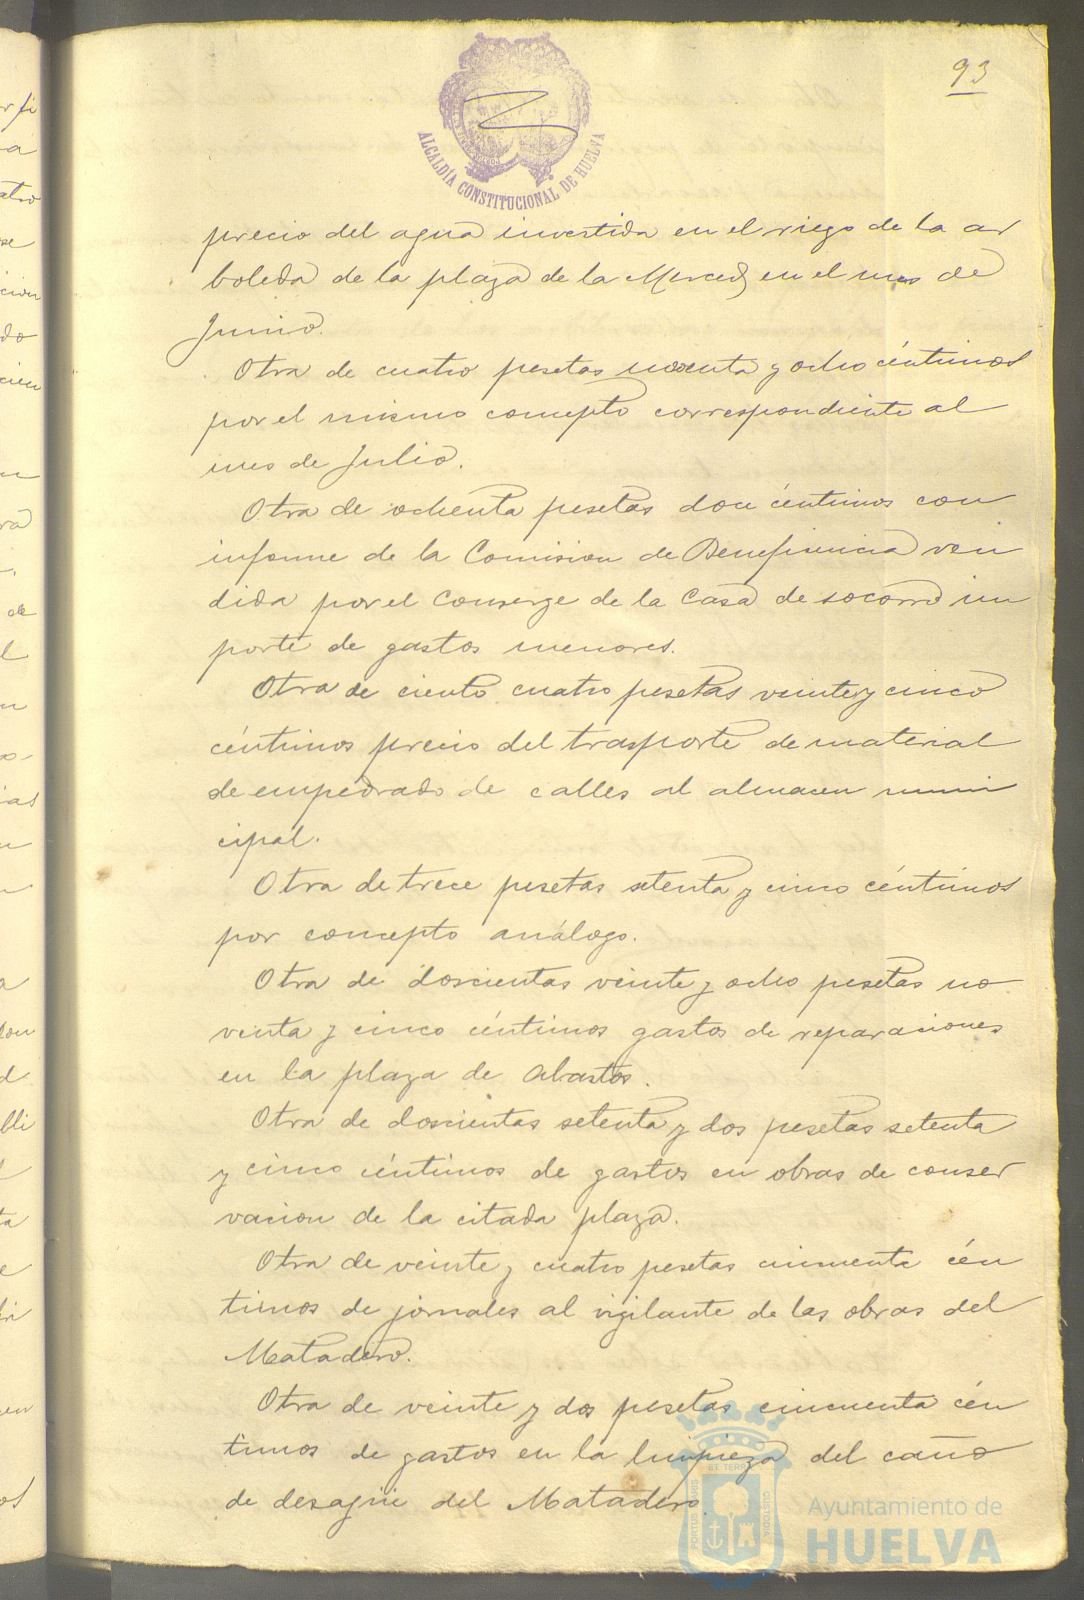 93
ALCALDÍA CONSTITUCIONAL DE HUELVA
precio del agua invertida en el riego de la ar
boleda de la plaza de la Merced en el mes de
Junio.
Otra de cuatro pesetas noventa y ocho céntimos
por el mismo concepto correspondiente al
mes de Julio.
Otra de ochenta pesetas doce céntimos con
informe de la Comision de Beneficencia ren
dida por el Conserge de la Casa de socorro im
porte de gastos menores.
Otra de ciento cuatro pesetas veinte y cinco
céntimos precio del trasporte de material
de empedrado de calles al almacen muni
cipal.
Otra de trece pesetas setenta y cinco céntimos
por concepto análogo.
Otra de doscientas veinte y ocho pesetas no
venta y cinco céntimos gastos de reparaciones
en la plaza de Abastos.
Otra de doscientas setenta y dos pesetas setenta
y cinco céntimos de gastos en obras de conser
vacion de la citada plaza.
Otra de veinte y cuatro pesetas cincuenta cén
timos de jornales al vigilante de las obras del
Matadero.
Otra de veinte y dos pesetas cincuenta cén
timos de gastos en la limpieza del caño
de desagüe del Matadero.
Ayuntamiento de
HUELVA